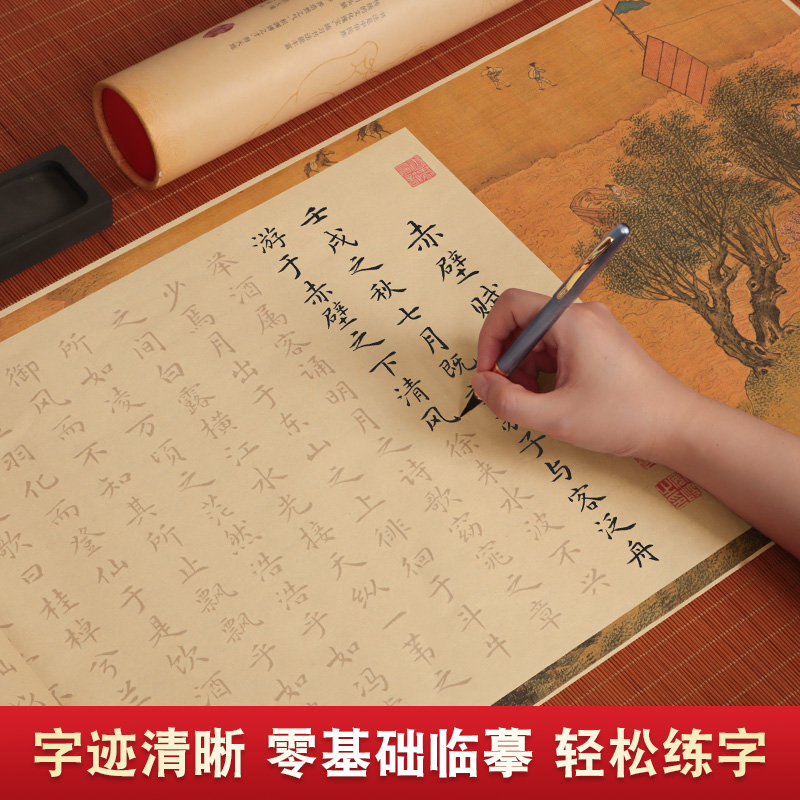 赤壁赋
壬戌之秋七月既子与客泛舟
游于赤壁之下清风徐来水波不兴
举酒属客诵明月之诗歌窈窕之章
少焉月出于东山之上徘徊于斗牛
之间白露横江水光接天纵一苇之
所如凌万顷之茫然浩浩乎如冯
御风而不知其所止飘飘乎如
羽化而登仙于是饮酒
歌曰桂棹兮兰
字迹清晰 零基础临摹 轻松练字